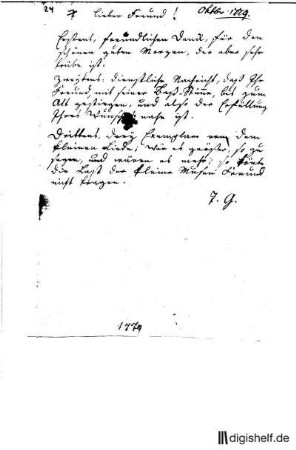 24
Oktbr. 1779.
Lieber Freund!
Erstens, freundlichen Dank, für den
schönen guten Morgen, der aber sehr
trübe ist.
Zweytens, dienstliche Nachricht, daß Ihr
Freund, mit seiner Baß-Stimme, bis zum
Alt gestiegen, und also der Erfüllung
Ihres Wunsches nahe ist.
Drittens, drey Exemplare von dem
kleinen Liede, wie es zu
sagen, und wären es mehr, so
die Last der kleine Musen Freund
nicht tragen.
J. G.
1779
digishelf.de